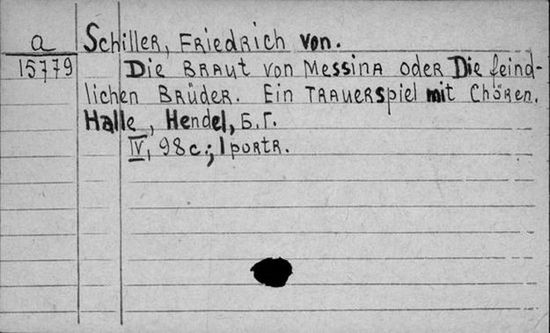 a
15779
Schiller, Friedrich von.
Die Braut von Messina oder Die feind-
lichen Brüder. Ein Trauerspiel mit Chören.
Halle, Hendel, Б.Г.
IV, 98 c.; 1 portr.